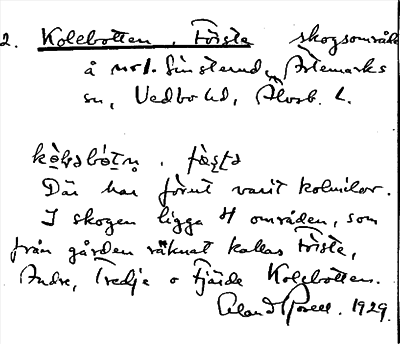 2. Kolebotten, Förste skogsområde
å nr 1. Finsterud, Ärtemarks
sn, Vedbo hd, Älvsb. l.
Där har förut varit kolmilor.
I skogen ligga 4 områden, som
från gården räknat kallas Förste,
Andre, Tredje o Fjärde Kolebotten.
Erland Rosell. 1929.